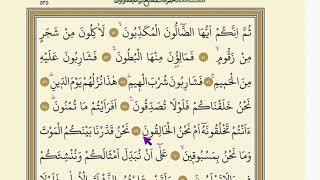 ثُمَّ إِنَّكُمْ أَيُّهَا الضَّالُّونَ الْمُكَذِّبُونَ ﴿٥١﴾ لَآكِلُونَ مِنْ شَجَرٍ
مِنْ زَقُّومٍ ﴿٥٢﴾ فَمَالِؤُنَ مِنْهَا الْبُطُونَ ﴿٥٣﴾ فَشَارِبُونَ عَلَيْهِ
مِنَ الْحَمِيمِ ﴿٥٤﴾ فَشَارِبُونَ شُرْبَ الْهِيمِ ﴿٥٥﴾ هٰذَا نُزُلُهُمْ يَوْمَ الدِّينِ ﴿٥٦﴾
نَحْنُ خَلَقْنَاكُمْ فَلَوْلَا تُصَدِّقُونَ ﴿٥٧﴾ أَفَرَأَيْتُمْ مَا تُمْنُونَ ﴿٥٨﴾
ءَأَنْتُمْ تَخْلُقُونَهُ أَمْ نَحْنُ الْخَالِقُونَ ﴿٥٩﴾ نَحْنُ قَدَّرْنَا بَيْنَكُمُ الْمَوْتَ
وَمَا نَحْنُ بِمَسْبُوقِينَ ﴿٦٠﴾ عَلَىٰ أَنْ نُبَدِّلَ أَمْثَالَكُمْ وَنُنْشِئَكُمْ